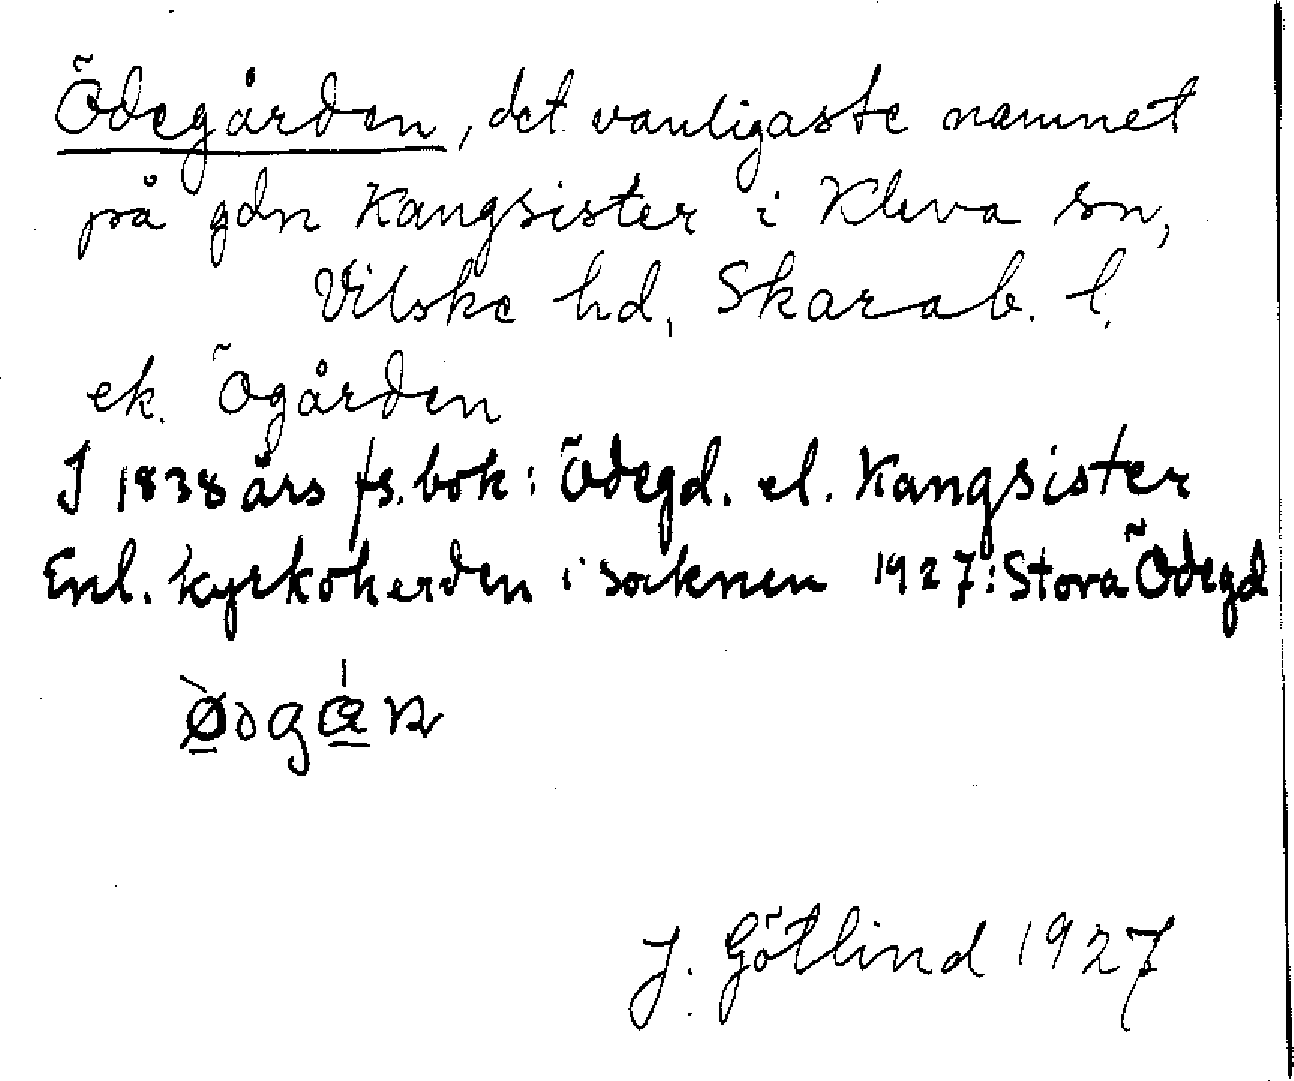 Ödegården, det vanligaste namnet
på gdn Kangsister i Kleva sn,
Vilske hd, Skarab. l.
ek. Ögården
I 1838 års fs.bok: Ödegd. el. Kangsister
Enl. kyrkoherden i socknen 1927: Stora Ödegd
J. Götlind 1927